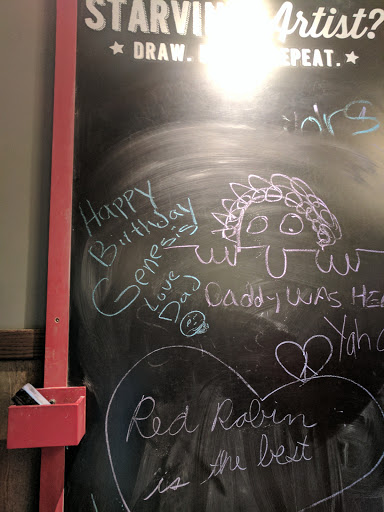 STARVIN Artist?
DRAW. EPEAT.
Happy
Birthday
Genesis
Love
Day
DADDY WAS HE
Yah
Red Robin
is the best